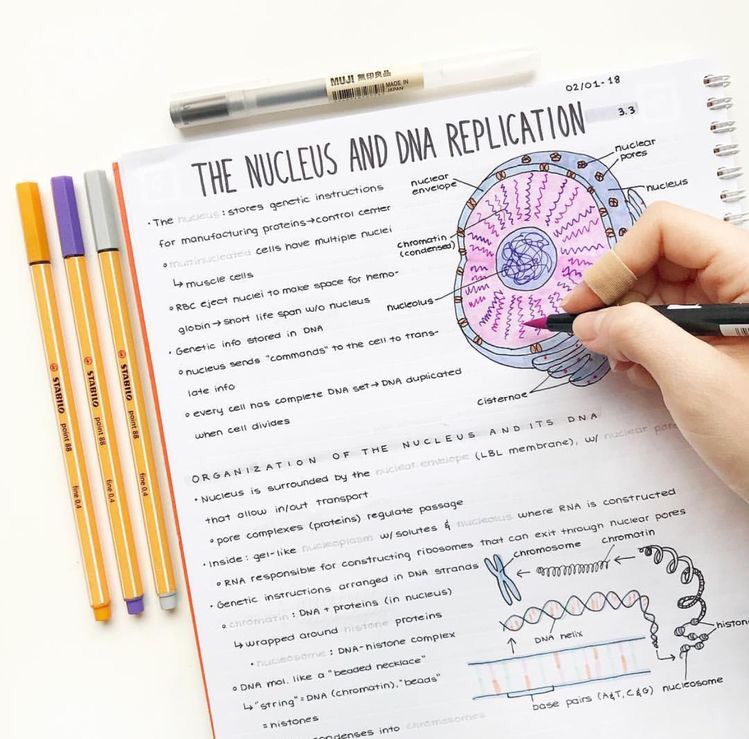 MUJI 無印良品
MADE IN
JAPAN
02/01-18
3.3
THE NUCLEUS AND DNA REPLICATION
• The nucleus: stores genetic instructions
for manufacturing proteins → control center
° multinucleated cells have multiple nuclei
↳ muscle cells
° RBC eject nuclei to make space for hemo-
globin → short life span w/o nucleus
• Genetic info stored in DNA
° nucleus sends "commands" to the cell to trans-
late info
° every cell has complete DNA set → DNA duplicated
when cell divides
nuclear
envelope
nuclear
pores
nucleus
chromatin
(condensed)
nucleolus
Cisternae
ORGANIZATION OF THE NUCLEUS AND ITS DNA
• Nucleus is surrounded by the nuclear envelope (LBL membrane), w/ nuclear pores
that allow in/out transport
° pore complexes (proteins) regulate passage
• Inside: gel-like nucleoplasm w/ solutes & nucleolus where RNA is constructed
° RNA responsible for constructing ribosomes that can exit through nuclear pores
• Genetic instructions arranged in DNA strands
° chromatin: DNA + proteins (in nucleus)
↳ wrapped around histone proteins
• nucleosome: DNA-histone complex
° DNA mol. like a "beaded necklace"
↳ "string" = DNA (chromatin), "beads"
= histones
condenses into chromosomes
chromosome
chromatin
DNA helix
histone
nucleosome
base pairs (A&T, C&G)
STABILO point 88 fine 0.4
STABILO point 88 fine 0.4
STABILO point 88 fine 0.4